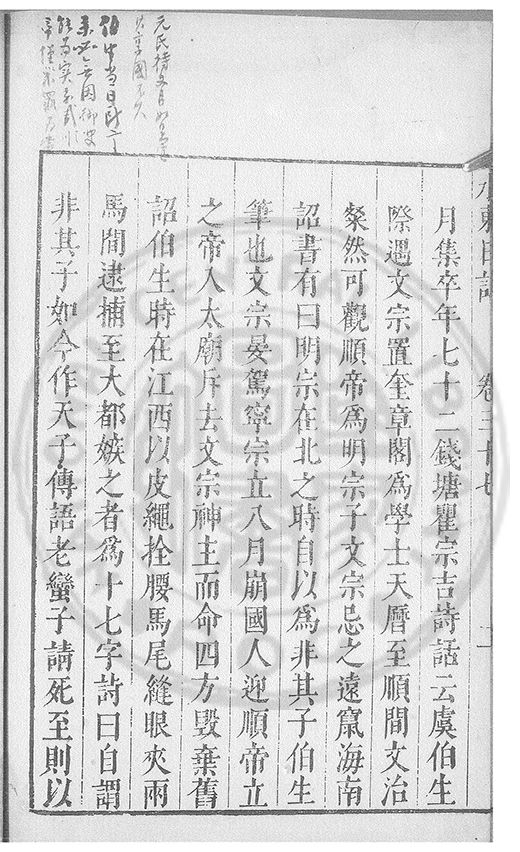 月集卒年七十二錢塘瞿宗吉詩話云虞伯生
際遇文宗置奎章閣爲學士天曆至順間文治
粲然可觀順帝爲明宗子文宗忌之遠竄海南
詔書有曰明宗在北之時自以爲非其子伯生
筆也文宗晏駕寧宗立八月崩國人迎順帝立
之帝入太廟斥去文宗神主而命四方毀棄舊
詔伯生時在江西以皮繩拴腰馬尾縫眼夾兩
馬間逮捕至大都嫉之者爲十七字詩曰自謂
非其子如今作天子傳語老蠻子請死至則以